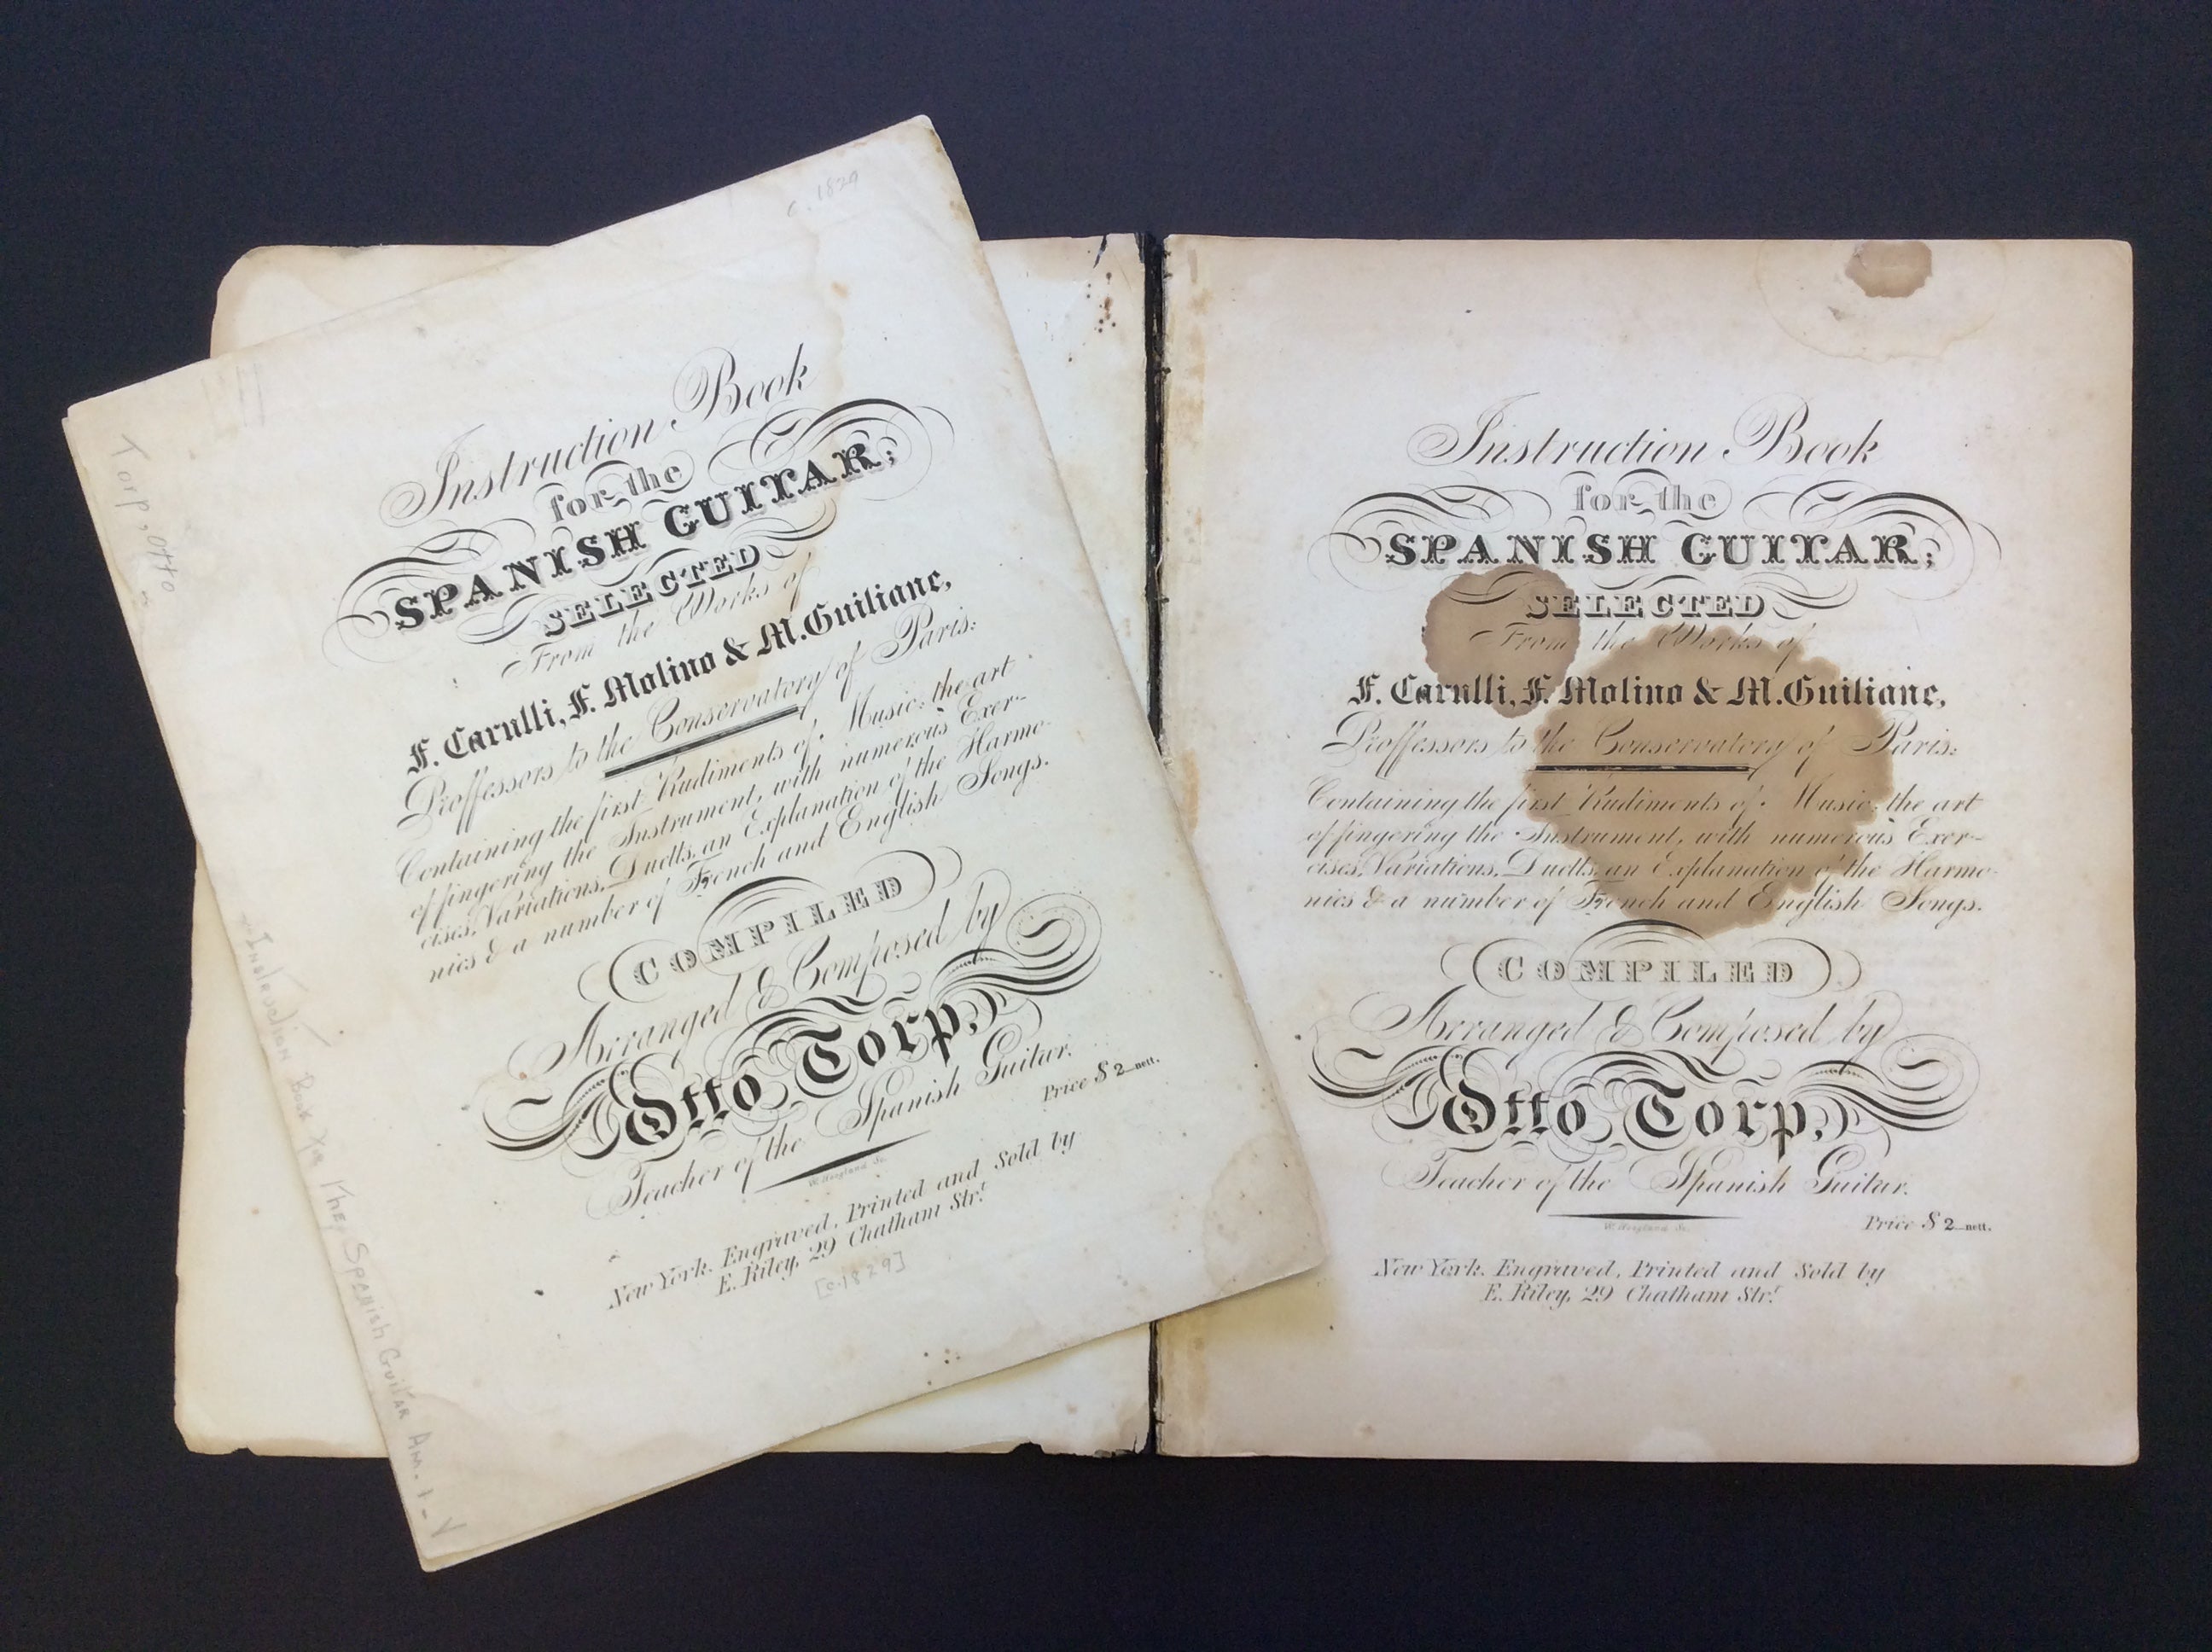 c. 1829
Torp, Otto
Instruction Book
for the
SPANISH GUITAR;
SELECTED
From the Works of
F. Carulli, F. Molino & M. Guiliane,
Proffessors to the Conservatory of Paris:
Containing the first Rudiments of Music: the art
of fingering the Instrument, with numerous Exer-
cises, Variations, Duetts, an Explanation of the Harmo-
nics & a number of French and English Songs.
COMPILED
Arranged & Composed by
Otto Torp,
Teacher of the Spanish Guitar.
Price $ 2 nett.
New York. Engraved, Printed and Sold by
E. Riley, 29 Chatham Str.t
[c. 1829]
Instruction Book the Spanish Guitar Am. 1 - V
Instruction Book
for the
SPANISH GUITAR;
SELECTED
From the Works of
F. Carulli, F. Molino & M. Guiliane,
Proffessors to the Conservatory of Paris:
Containing the first Rudiments of Music: the art
of fingering the Instrument, with numerous Exer-
cises, Variations, Duetts, an Explanation of the Harmo-
nics & a number of French and English Songs.
COMPILED
Arranged & Composed by
Otto Torp,
Teacher of the Spanish Guitar.
Price $ 2 nett.
New York. Engraved, Printed and Sold by
E. Riley, 29 Chatham Str.t